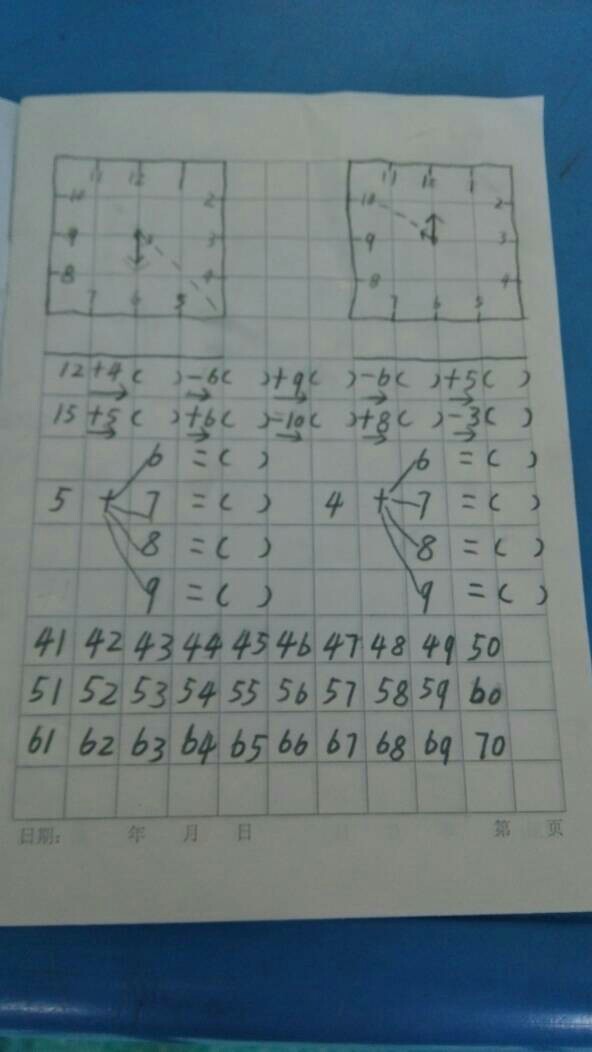 11 12 1 11 12 1
10 2 10 2
9 3 9 3
8 4 8 4
7 6 5 7 6 5
12 +4 ( ) -6 ( ) +9 ( ) -6 ( ) +5 ( )
15 +5 ( ) +6 ( ) -10 ( ) +8 ( ) -3 ( )
6 = ( ) 6 = ( )
5 + 7 = ( ) 4 + 7 = ( )
8 = ( ) 8 = ( )
9 = ( ) 9 = ( )
41 42 43 44 45 46 47 48 49 50
51 52 53 54 55 56 57 58 59 60
61 62 63 64 65 66 67 68 69 70
日期: 年 月 日 第 页